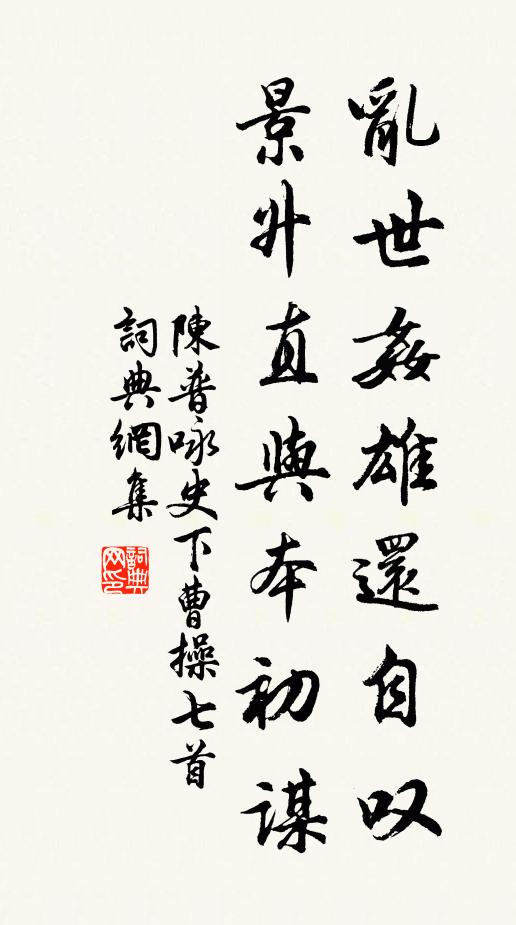 亂世姦雄還自叹
景升直與本初謀
陳普咏史下曹操七首
詞典網集
詞典网印